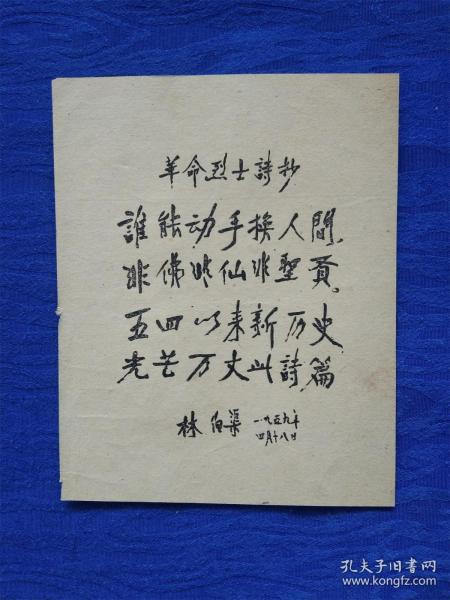 革命烈士詩抄
誰能动手换人間、
非佛非仙非聖贤、
五四以来新历史
光芒万丈此詩篇
林伯渠 一九五九年
四月十八日
孔夫子旧书网
www.kongfz.com